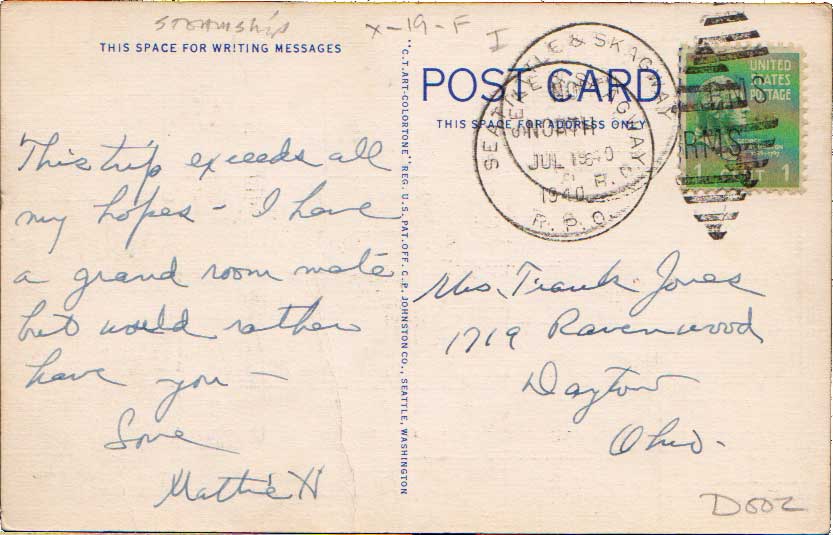 steamship
X-19-F
I
THIS SPACE FOR WRITING MESSAGES
POST CARD
THIS SPACE FOR ADDRESS ONLY
SEATTLE & SKAGWAY
NORTH
JUL 19
1940
R.P.O.
UNITED
STATES
POSTAGE
RMS
RMS
1 1
This trip exceeds all
my hopes - I have
a grand room mate
but would rather
have you -
Love
Mattie H
"C.T. ART-COLORTONE" REG. U.S. PAT. OFF. C. P. JOHNSTON CO., SEATTLE, WASHINGTON
Mrs. Frank Jones
1719 Ravenwood
Dayton
Ohio.
D002